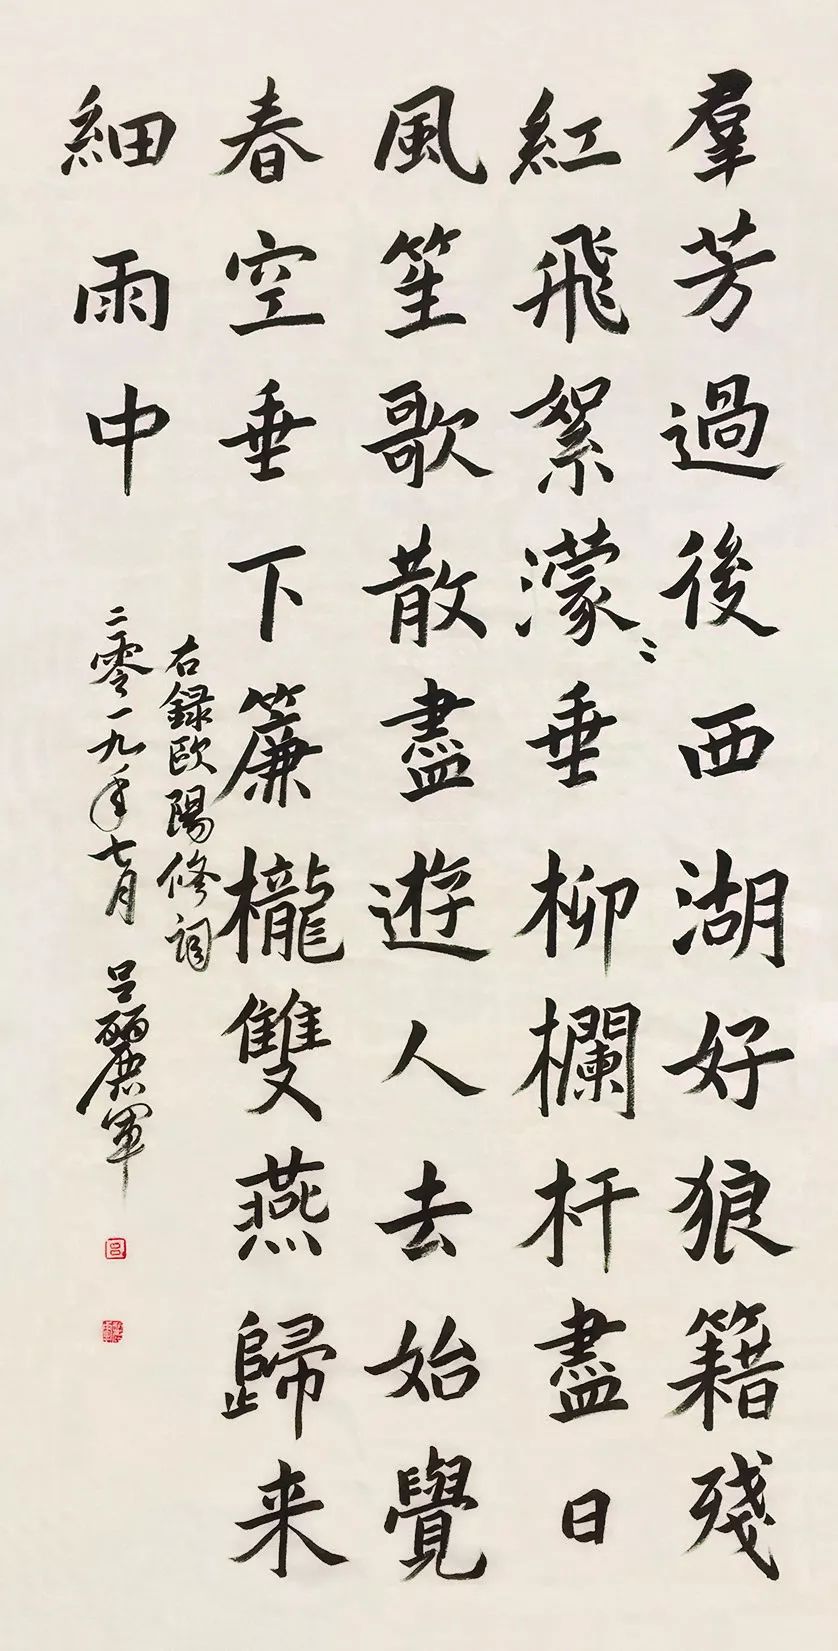 羣芳過後西湖好狼籍殘
紅飛絮濛〻垂柳欄杆盡日
風笙歌散盡遊人去始覺
春空垂下簾櫳雙燕歸来
細雨中
右録欧陽修詞
二零一九年七月 吕麗軍